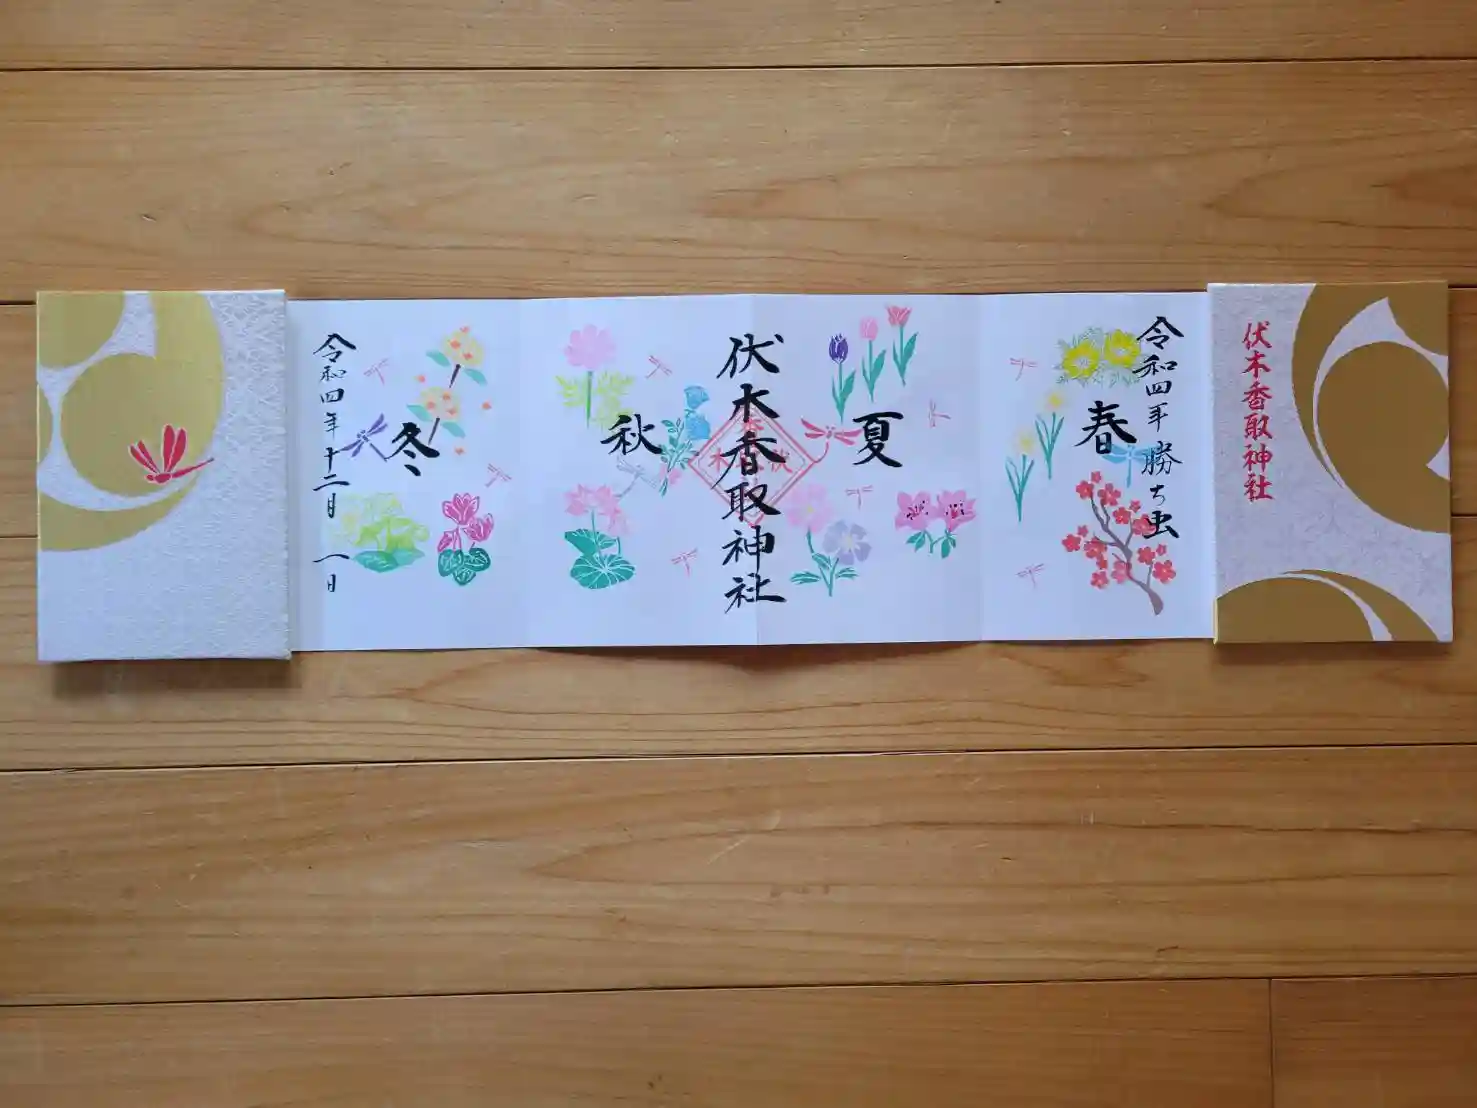 伏木香取神社
令和四年勝ち虫
春
夏
伏木香取神社
秋
冬
令和四年十二月一日